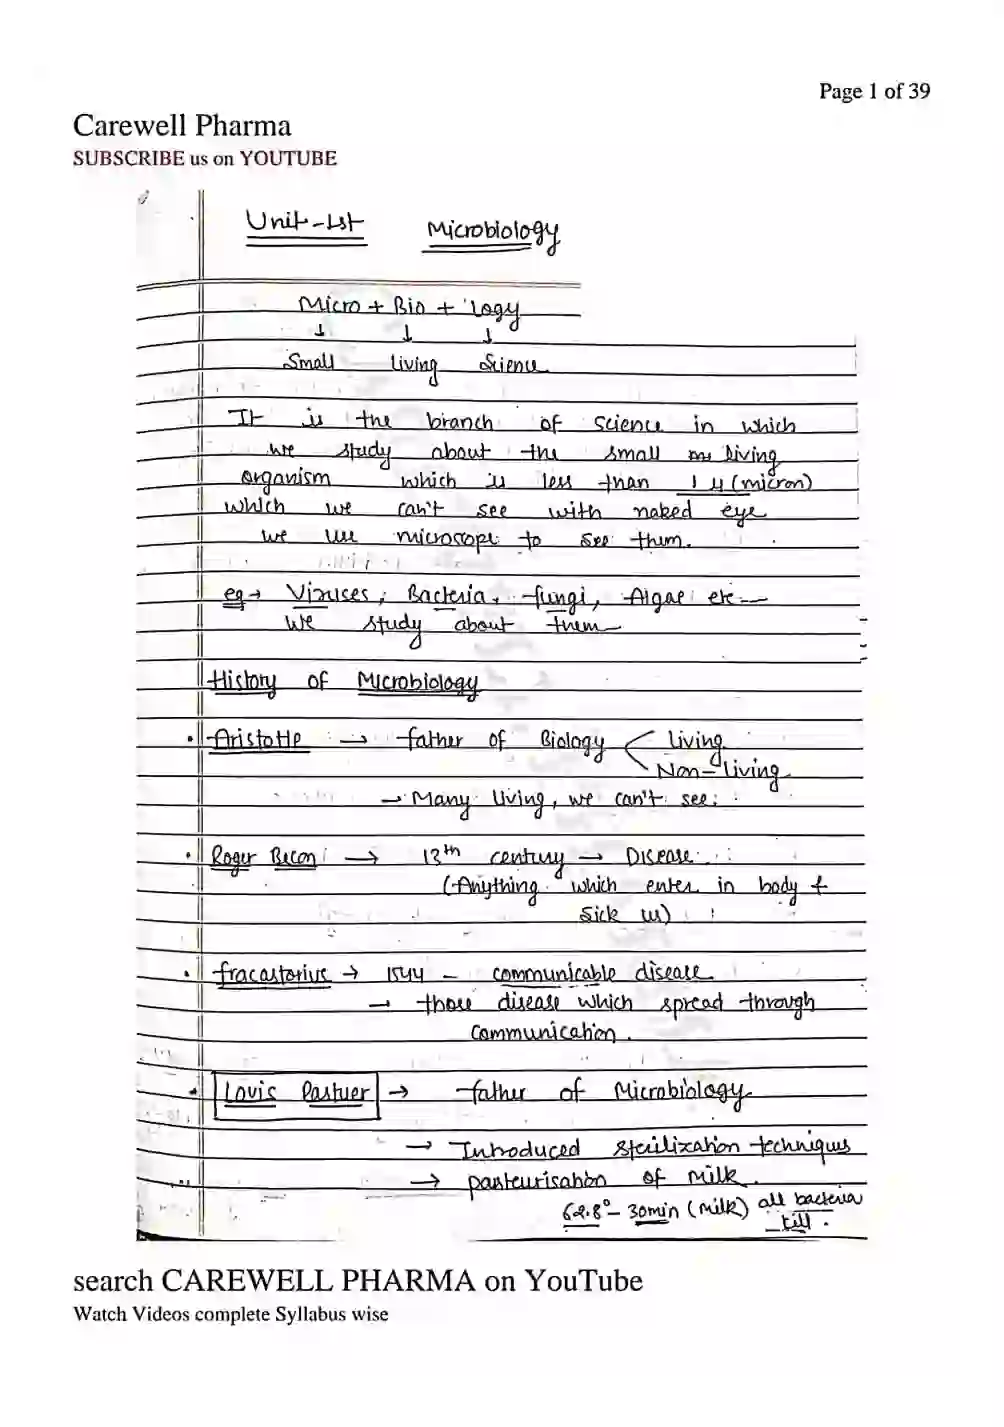 Page 1 of 39
Carewell Pharma
SUBSCRIBE us on YOUTUBE
Unit-Ist Microbiology
Micro + Bio + Logy
↓ ↓ ↓
Small Living Science
It is the branch of science in which
we study about the small living
organism which is less than 1 μ (micron)
which we can't see with naked eye
we use microscope to see them.
eg → Viruses, Bacteria, fungi, Algae etc —
we study about them
History of Microbiology
• Aristotle → father of Biology < Living
Non-living
→ Many living, we can't see.
• Roger Becon → 13th century → Disease
(Anything which enter in body &
sick us)
• fracastorius → 1544 - communicable disease
→ those disease which spread through
communication.
• Louis Pastuer → father of Microbiology
→ Introduced sterilization techniques
→ pasteurisation of milk.
62.8° - 30min (milk) all bacteria
kill.
search CAREWELL PHARMA on YouTube
Watch Videos complete Syllabus wise